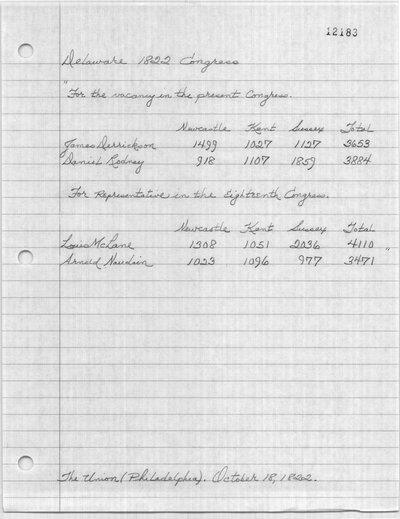 12183
Delaware 1822 Congress
"For the vacancy in the present Congress.
Newcastle Kent Sussex Total
James Derrickson 1499 1027 1127 3653
Daniel Rodney 918 1107 1859 3884
For Representative in the Eighteenth Congress.
Newcastle Kent Sussex Total
Louis McLane 1308 1051 2036 4110 "
Arnold Naudain 1023 1096 977 3471
The Union (Philadelphia). October 18, 1822.